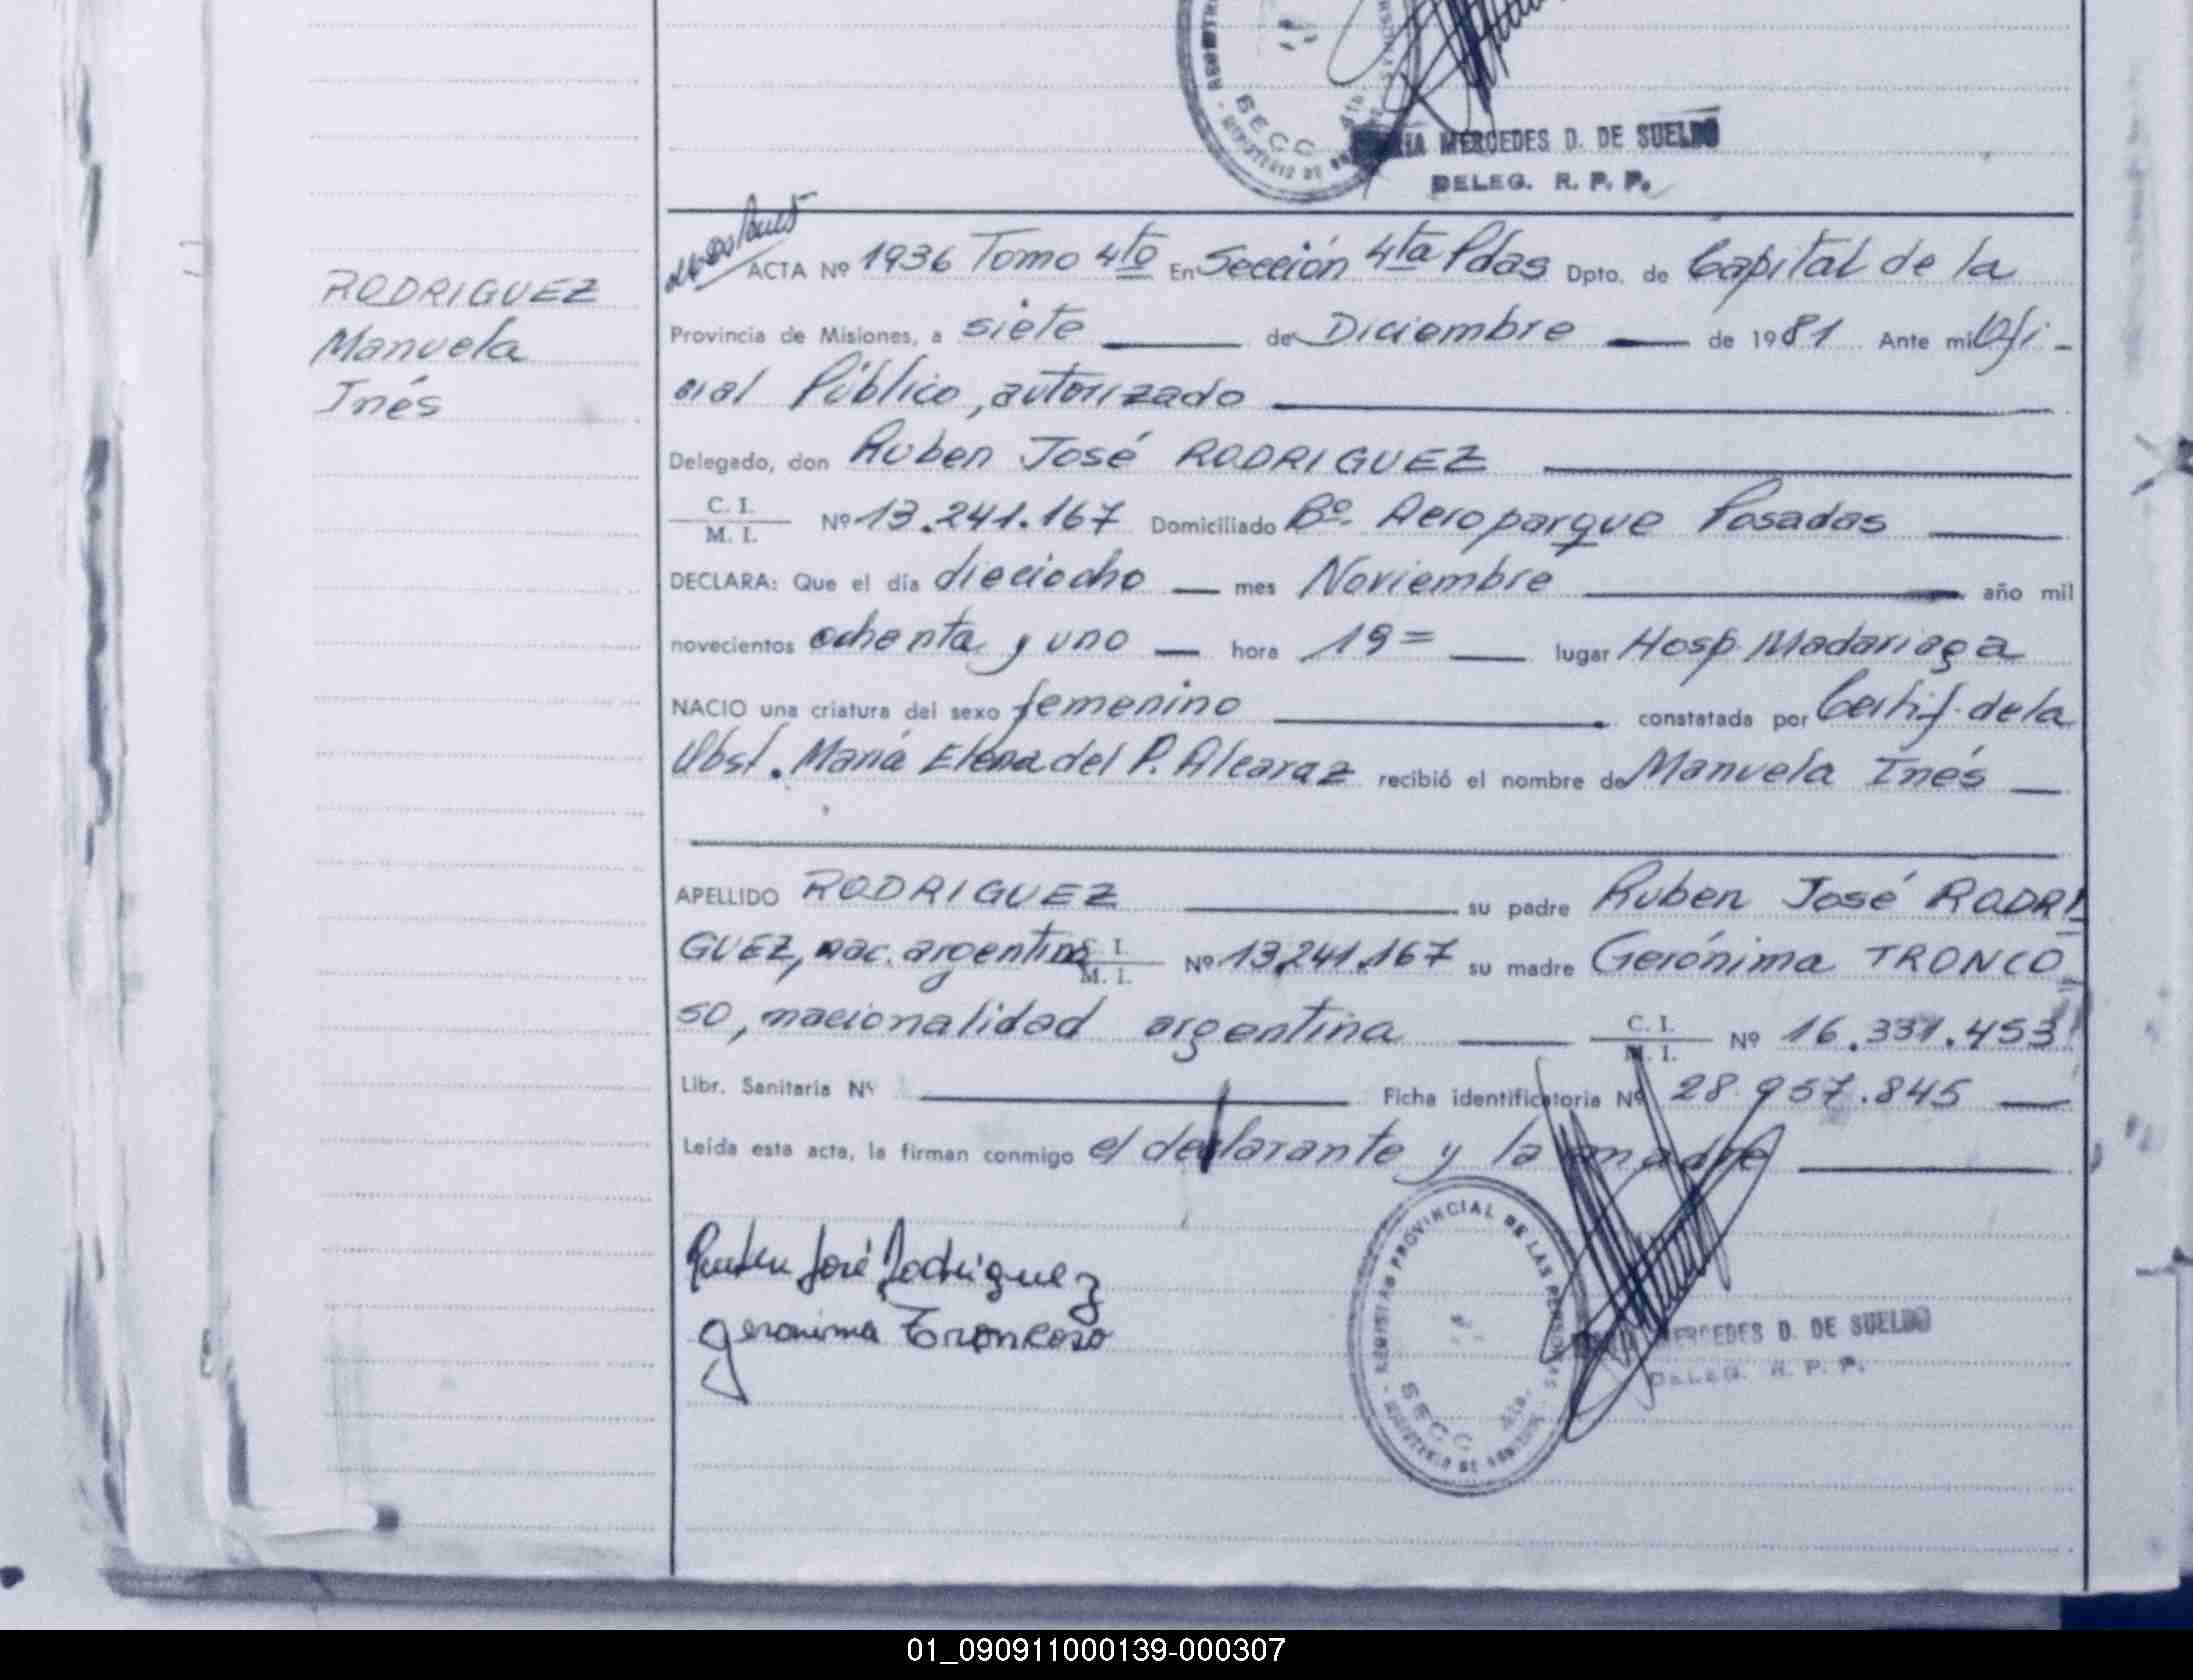 MERCEDES D. DE SUELDO
DELEG. R. P. P.
SECC 4ta.
RODRIGUEZ
Manuela
Inés
ACTA Nº 1936 Tomo 4to En Sección 4ta Pdas Dpto. de Capital de la
Provincia de Misiones, a siete de Diciembre de 1981 Ante mi Ofi-
cial Público, autorizado
Delegado, don Ruben José RODRIGUEZ
C. I.
M. I. Nº 13.241.167 Domiciliado Bº. Aeroparque Posadas
DECLARA: Que el día dieciocho mes Noviembre año mil
novecientos ochenta y uno hora 19= lugar Hosp. Madariaga
NACIO una criatura del sexo femenino constatada por Certif. de la
Obst. María Elena del P. Alcaraz recibió el nombre de Manuela Inés
APELLIDO RODRIGUEZ su padre Ruben José RODRI
GUEZ, nac. argentina C. I. M. I. Nº 13.241.167 su madre Gerónima TRONCO
SO, nacionalidad argentina C. I. M. I. Nº 16.331.453
Libr. Sanitaria Nº Ficha identificatoria Nº 28.957.845
Leída esta acta, la firman conmigo el declarante y la madre
Ruben José Rodriguez
Geronima Troncoso
REGISTRO PROVINCIAL DE LAS PERSONAS
SECC 4ta.
MERCEDES D. DE SUELDO
DELEG. R. P. P.
01_090911000139-000307